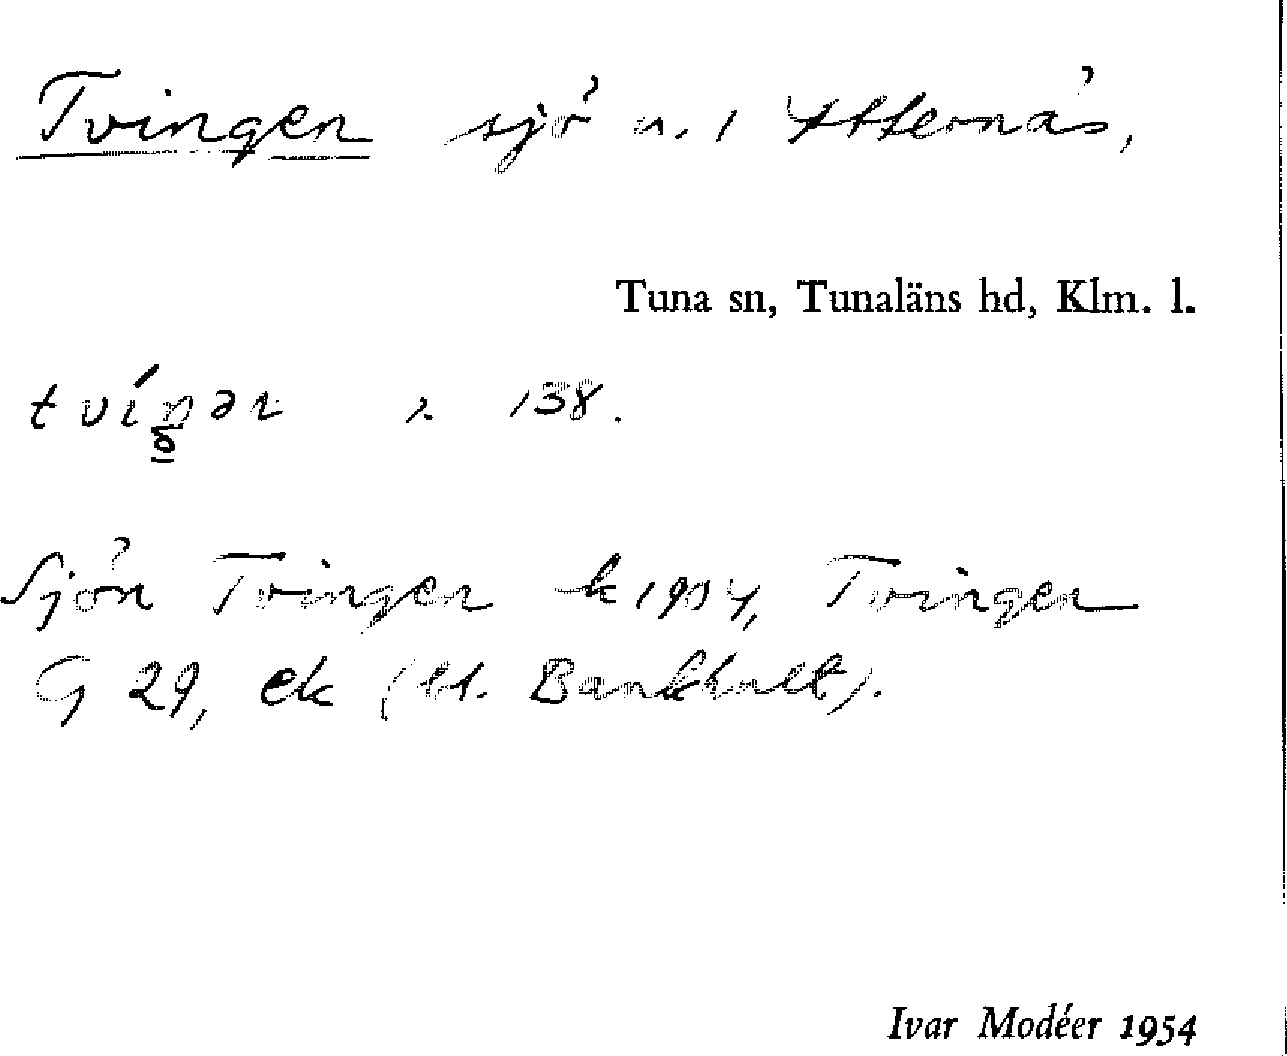 Tvingen sjö n. 1 Ytternäs,
Tuna sn, Tunaläns hd, Klm. l.
tvíŋən 138.
Sjön Tvingen k 1904, Tvingen
G 29, ek (bl. Bankhult).
Ivar Modéer 1954